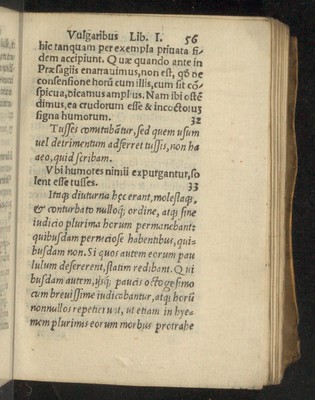 Vulgaribus Lib. I. 56
hic tanquam per exempla priuata fi-
dem accipiunt. Quæ quando ante in
Præsagiis enarrauimus, non est, qđ de
consensione horũ cum illis, cum sit cõ-
spicua, dicamus amplius. Nam ibi ostẽ
dimus, ea crudorum esse & incoctorũ
signa humorum. 32
Tusses comitabãtur, sed quem usum
uel detrimentum adferret tussis, non ha
aeo, quid scribam.
Vbi humores nimii expurgantur, so
lent esse tusses. 33
Itaq; diuturna hęc erant, molestaq;,
& conturbato nulloq; ordine, atq; sine
iudicio plurima horum permanebant:
quibusdam perneciose habentibus, qui-
busdam non. Si quos autem eorum pau
lulum desererent, statim redibant. Qui
busdam autem, ijsq; paucis octogesimo
cum breuissime iudicabantur, atq; horũ
nonnullos repetierunt, ut etiam in hye-
mem plurimis eorum morbus protrahe